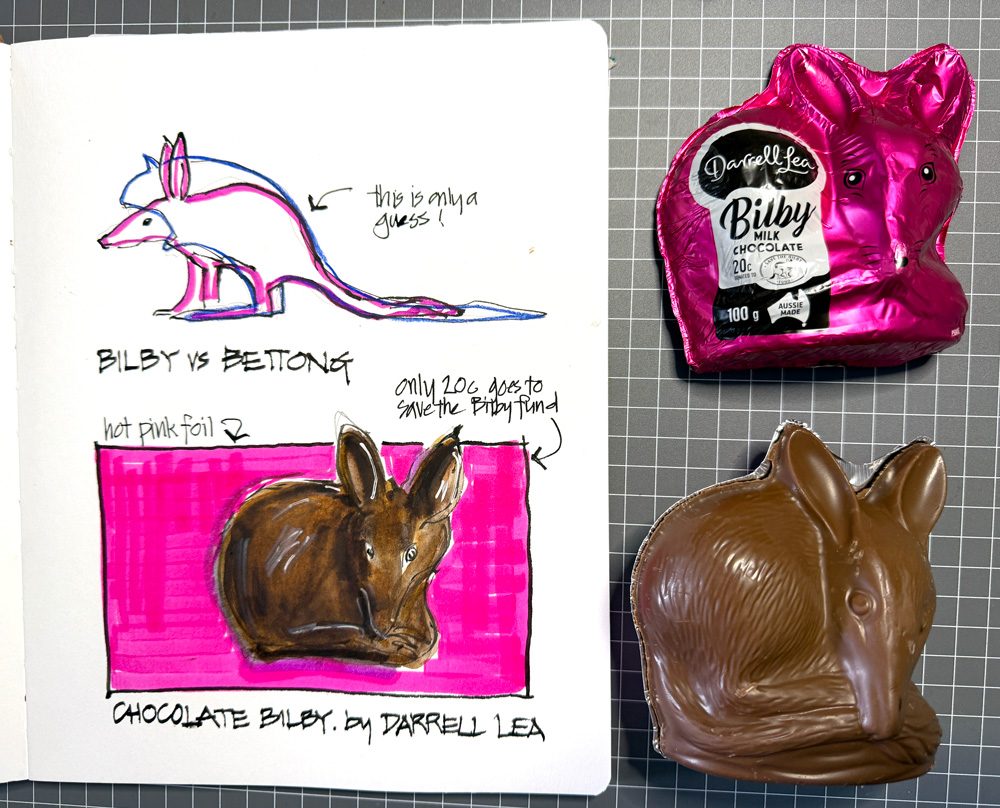 this is only a
guess!
BILBY VS BETTONG
only 20c goes to
save the Bilby fund
hot pink foil
CHOCOLATE BILBY. by DARRELL LEA
Darrell Lea
Bilby
MILK
CHOCOLATE
20c
DONATED TO
SAVE THE BILBY
FUND
100 g
AUSSIE
MADE